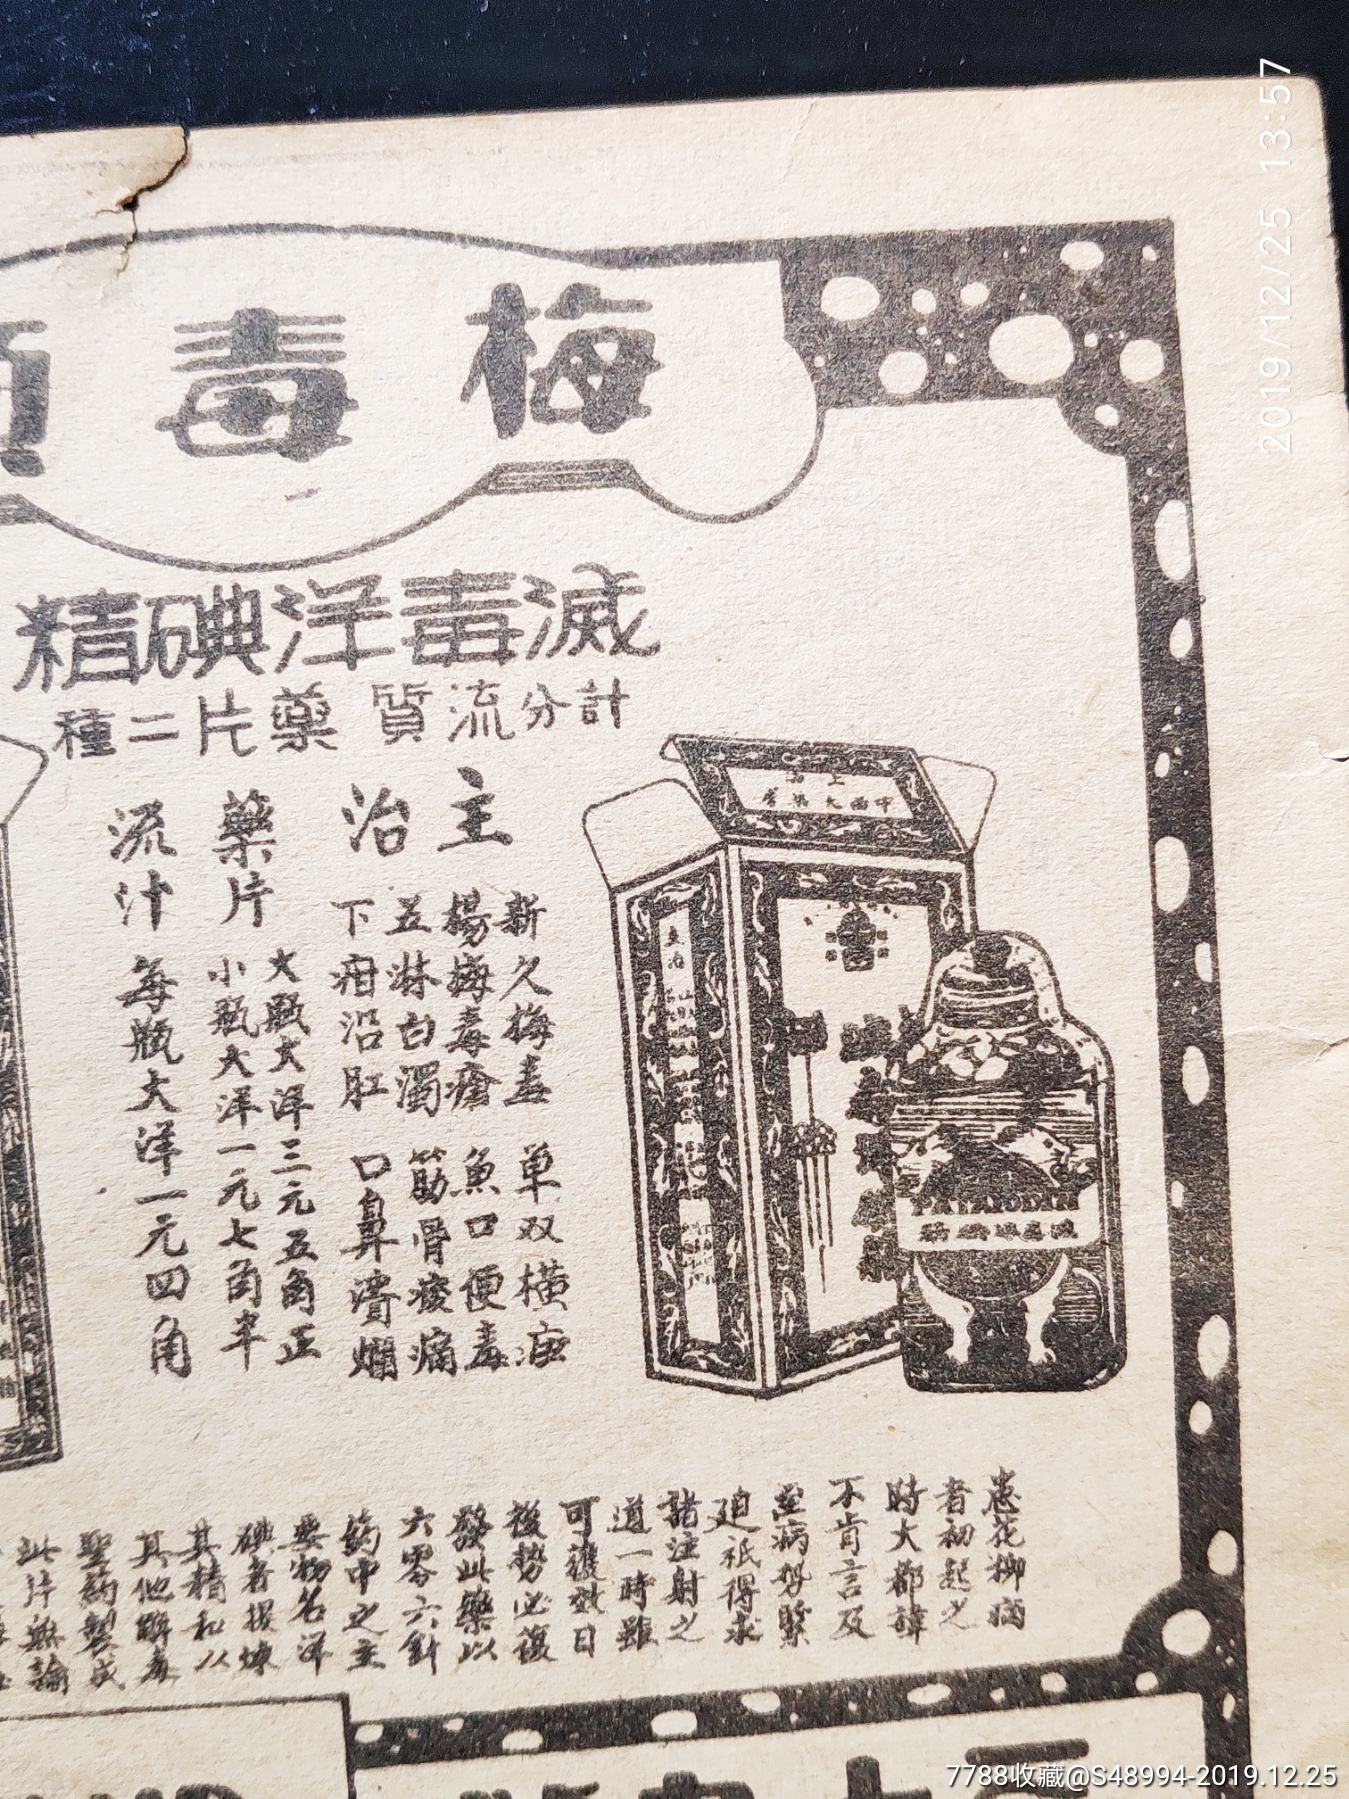 梅毒
滅毒洋碘精
計分流質藥片二種
主治
新久梅毒 單双橫痃
楊梅毒瘡 魚口便毒
五淋白濁 筋骨痠痛
下疳沿肛 口鼻潰爛
藥片
大瓶大洋三元五角正
小瓶大洋一元七角半
流汁 每瓶大洋一元四角
患花柳病
者初起之
時大都諱
不肯言及
至病勢緊
迫祇得求
諸注射之
道一時雖
可獲效日
後勢必復
發此藥以
六零六針
藥中之主
要物名洋
碘者提煉
其精和以
其他解毒
聖药製成
此片無論
2019/12/25 13:57
7788收藏@S48994-2019.12.25